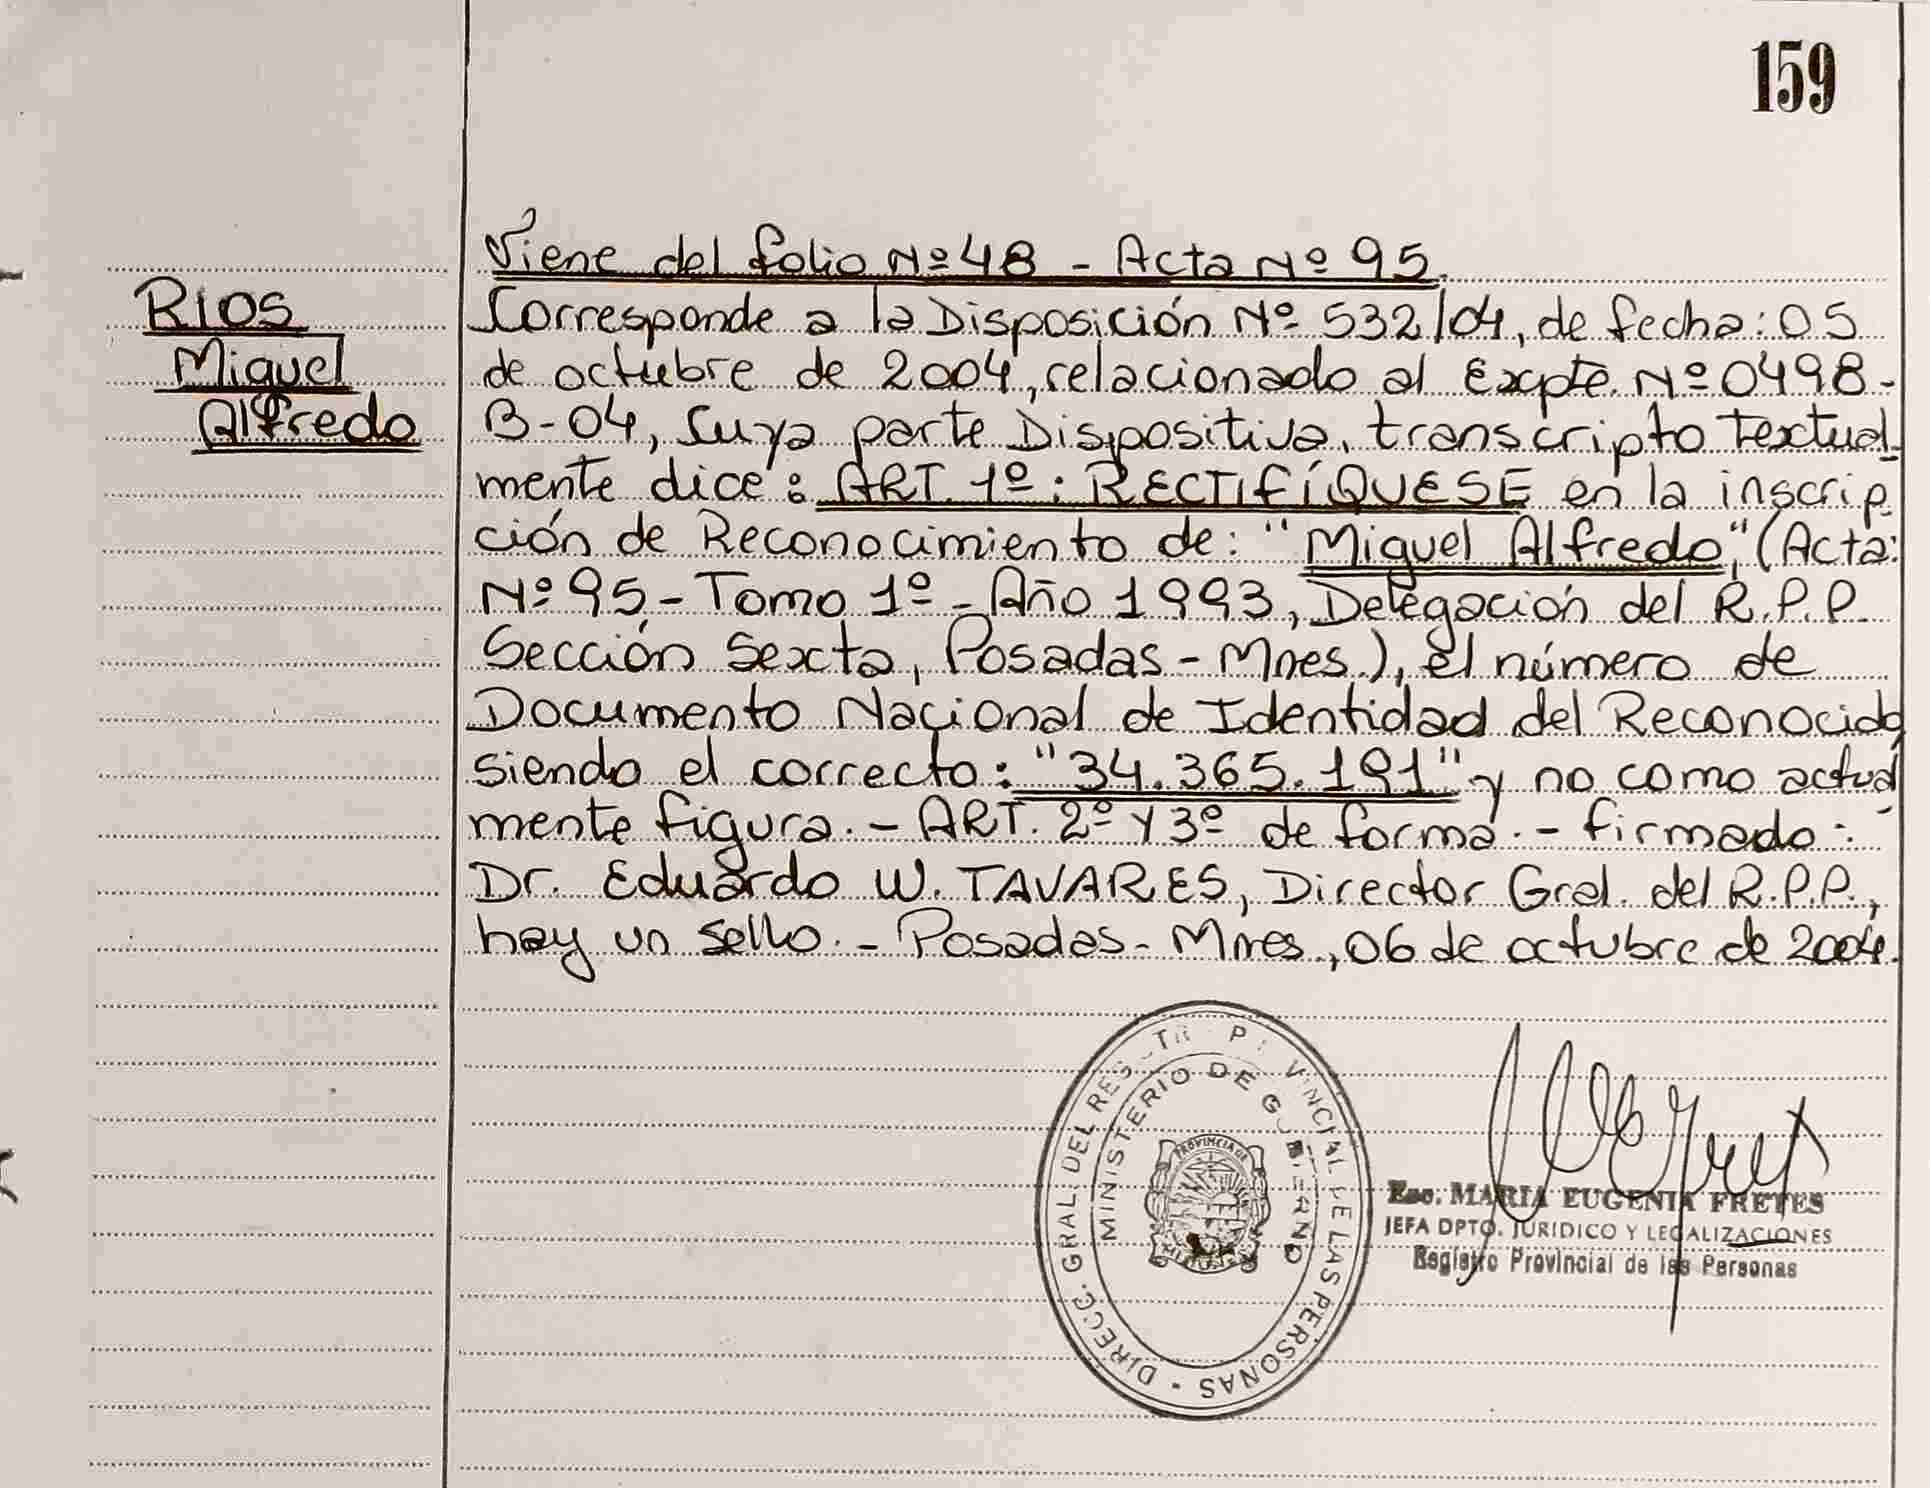 159
Viene del folio Nº 48 - Acta Nº 95.
RIOS
Miguel
Alfredo
Corresponde a la Disposición Nº 532/04, de fecha: 05
de octubre de 2004, relacionado al Expte. Nº 0498-
B-04, Cuya parte Dispositiva, transcripto textual-
mente dice: ART. 1º: RECTIFÍQUESE en la inscrip-
ción de Reconocimiento de: "Miguel Alfredo", (Acta:
Nº 95, - Tomo 1º - Año 1993, Delegación del R.P.P.
Sección Sexta, Posadas - Mnes.), el número de
Documento Nacional de Identidad del Reconocido
siendo el correcto: "34.365.191" y no como actual
mente figura. - ART. 2º Y 3º de forma. - firmado:
Dr. Eduardo W. TAVARES, Director Gral. del R.P.P.,
hay un sello. - Posadas - Mnes., 06 de octubre de 2004.
DIRECC. GRAL. DEL REGISTRO PROVINCIAL DE LAS PERSONAS
MINISTERIO DE GOBIERNO
PROVINCIA DE
MISIONES
Esc. MARIA EUGENIA FRETES
JEFA DPTO. JURIDICO Y LEGALIZACIONES
Registro Provincial de las Personas